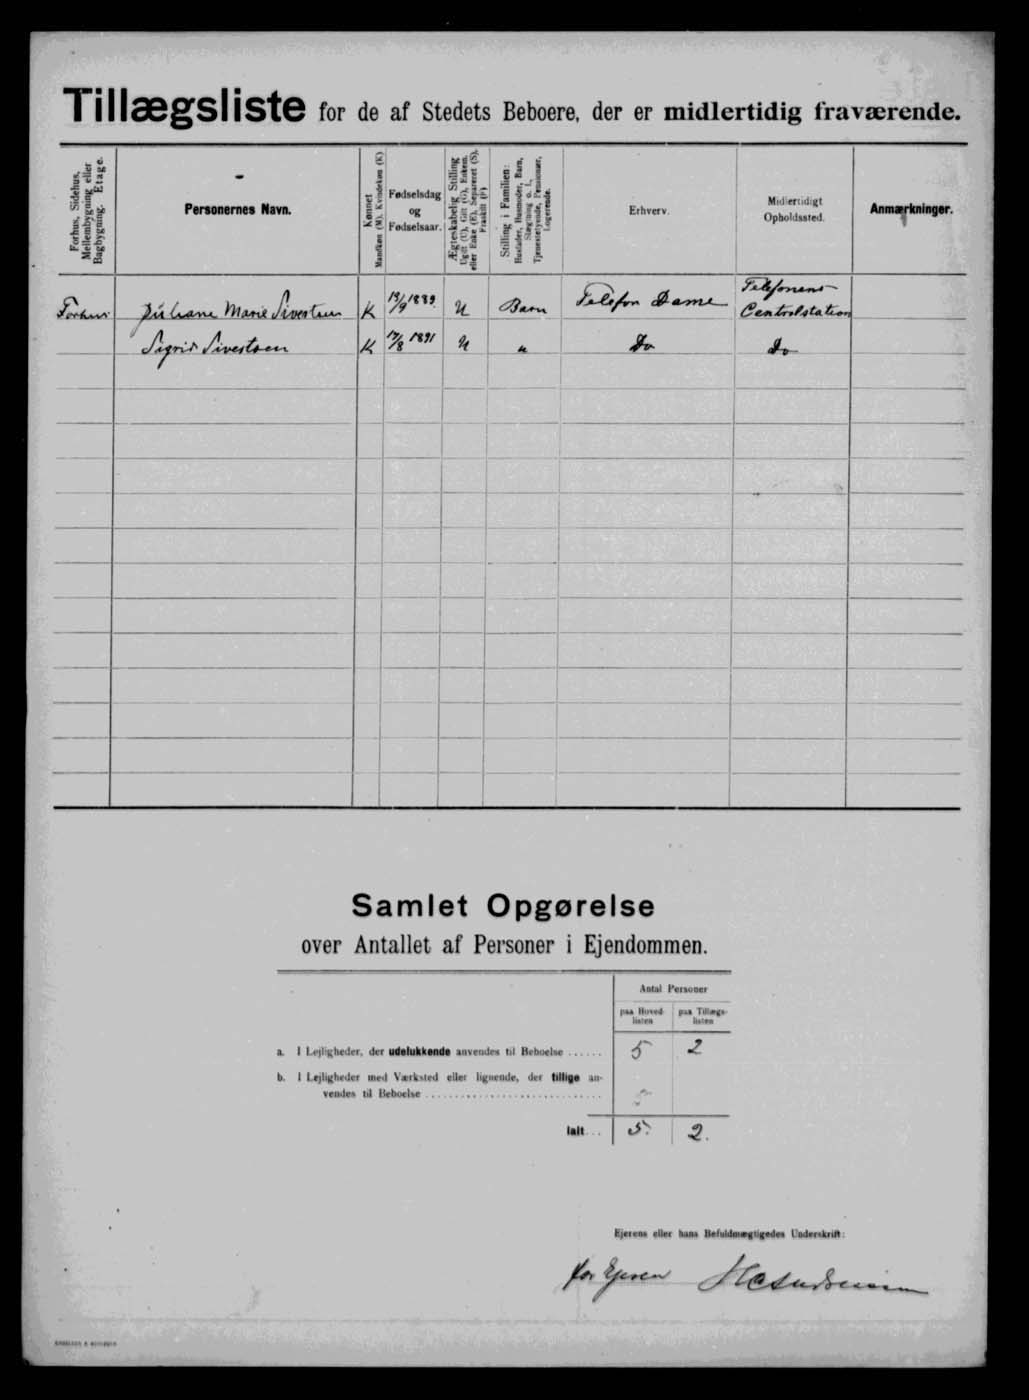 Tillægsliste for de af Stedets Beboere, der er midlertidig fraværende.
Forhus, Sidehus, Mellembygning eller Bagbygning. Etage.
Personernes Navn.
Kønnet Mandkøn (M), Kvindekøn (K)
Fødselsdag og Fødselsaar.
Ægteskabelig Stilling Ugift (U), Gift (G), Enkem. eller Enke (E), Separeret (S), Fraskilt (F)
Stilling i Familien: Husfader, Husmoder, Barn, Slægtning o. l., Tjenestetyende, Pensionær, Logerende.
Erhverv.
Midlertidigt Opholdssted.
Anmærkninger.
Forhus Juliane Marie Sivertsen K 13/9 1889. U Barn Telefon Dame Telefonens Centralstation
Sigrid Sivertsen K 17/8 1891 U " Do Do
Samlet Opgørelse
over Antallet af Personer i Ejendommen.
Antal Personer
paa Hoved-listen paa Tillægs-listen
a. I Lejligheder, der udelukkende anvendes til Beboelse ...... 5 2
b. I Lejligheder med Værksted eller lignende, der tillige an-
vendes til Beboelse ..............................
Ialt... 5. 2.
Ejerens eller hans Befuldmægtigedes Underskrift:
for Ejeren